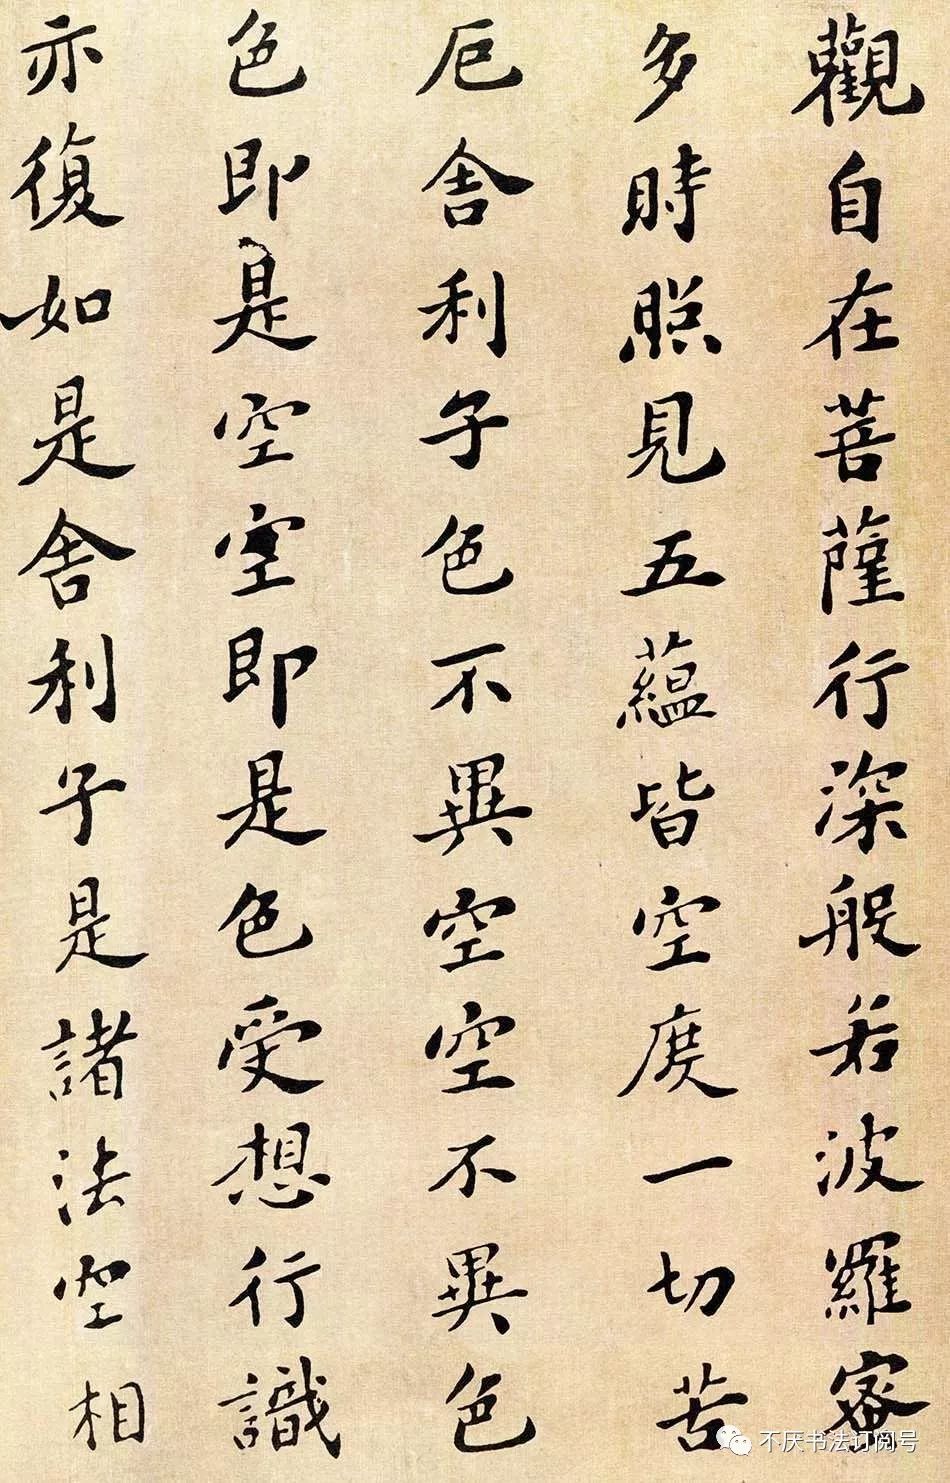 觀自在菩薩行深般若波羅蜜
多時照見五蘊皆空度一切苦
厄舍利子色不異空空不異色
色即是空空即是色受想行識
亦復如是舍利子是諸法空相
不厌书法订阅号